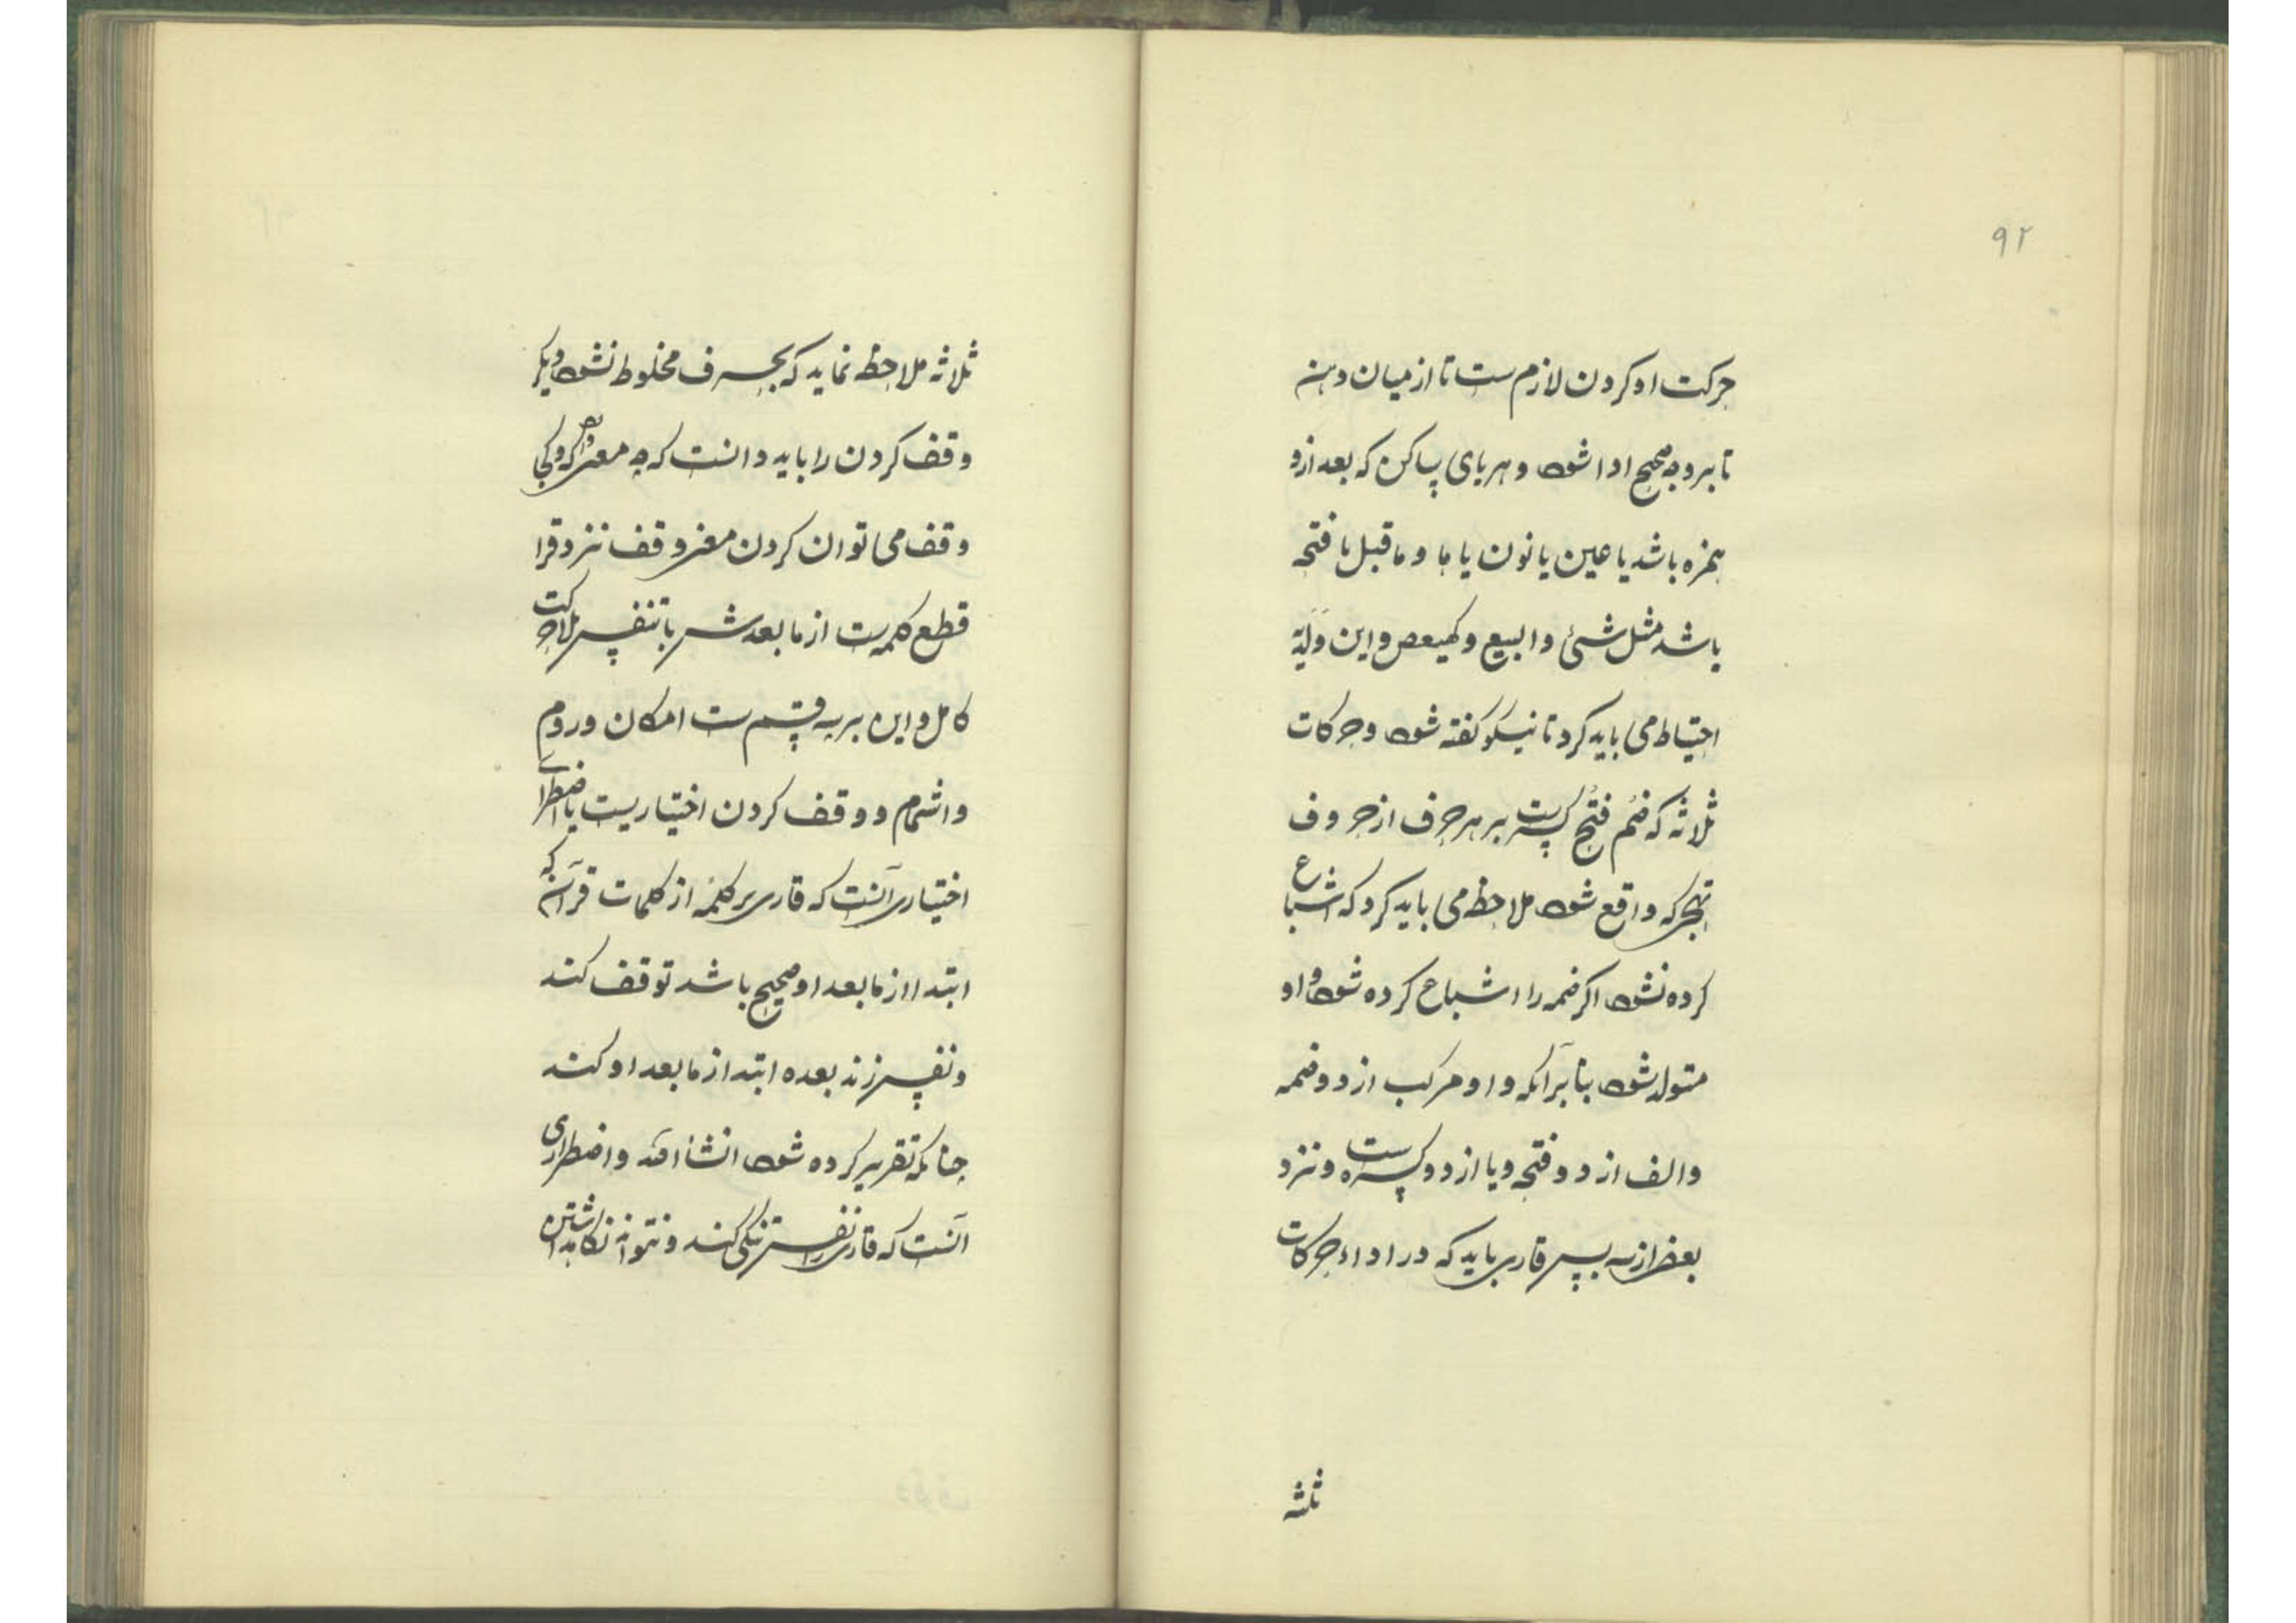 ۹۲
حرکت او کردن لازم ست تا از میان دهن
تا بر وجه صحیح ادا شود و هر یای ساکن که بعد ازو
همزه باشد یا عین یا نون یا ها و ما قبل با فتحه
باشد مثل شئ و البیع و کهیعص و این
احتیاط می باید کرد تا نیکو گفته شود و حرکات
ثلاثه که ضم فتح کسرست بر هر حرف از حروف
تهجی که واقع شود ملاحظه می باید کرد که اشباع
کرده نشود اگر ضمه را اشباع کرده شود واو
متولد شود بنا بر آنکه واو مرکب از دو ضمه
و الف از دو فتحه و یا از دو کسره ست و نزد
بعضی از سه پس قاری باید که در ادا حرکات
ثلثه
ثلاثه ملاحظه نماید که بحرف مخلوط نشود و دیگر
وقف کردن را باید دانست که چه معنی دارد و کجا
وقف می توان کردن معنی وقف نزد قرا
قطع کلمه ست از ما بعدش با تنفس
کامل و این بر سه قسم ست امکان و روم
و اشمام و وقف کردن اختیاریست یا اضطراری
اختیاری آنست که قاری بر کلمه از کلمات قرآن که
ابتدا از ما بعد او صحیح باشد توقف کند
و نفس زند بعده ابتدا از ما بعد او کند
چنانکه تقریر کرده شود انشا الله و اضطراری
آنست که قاری را نفس تنگی کند و نتواند نگاهداشتن